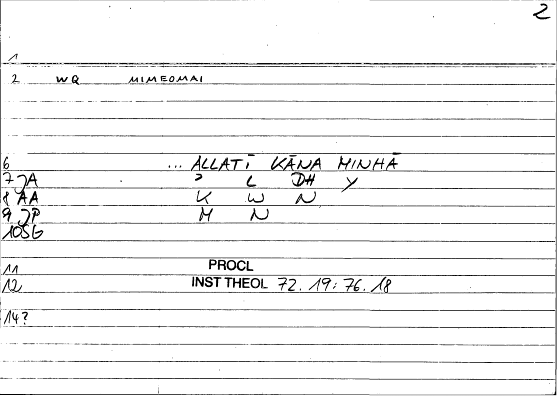 2
1
2 WQ MIMEOMAI
6 ... ALLATĪ KĀNA MINHĀ
7 JA ʾ L DH Y
8 AA K W N
9 JP M N
10SG
11 PROCL
12 INST THEOL 72.19:76.18
14?